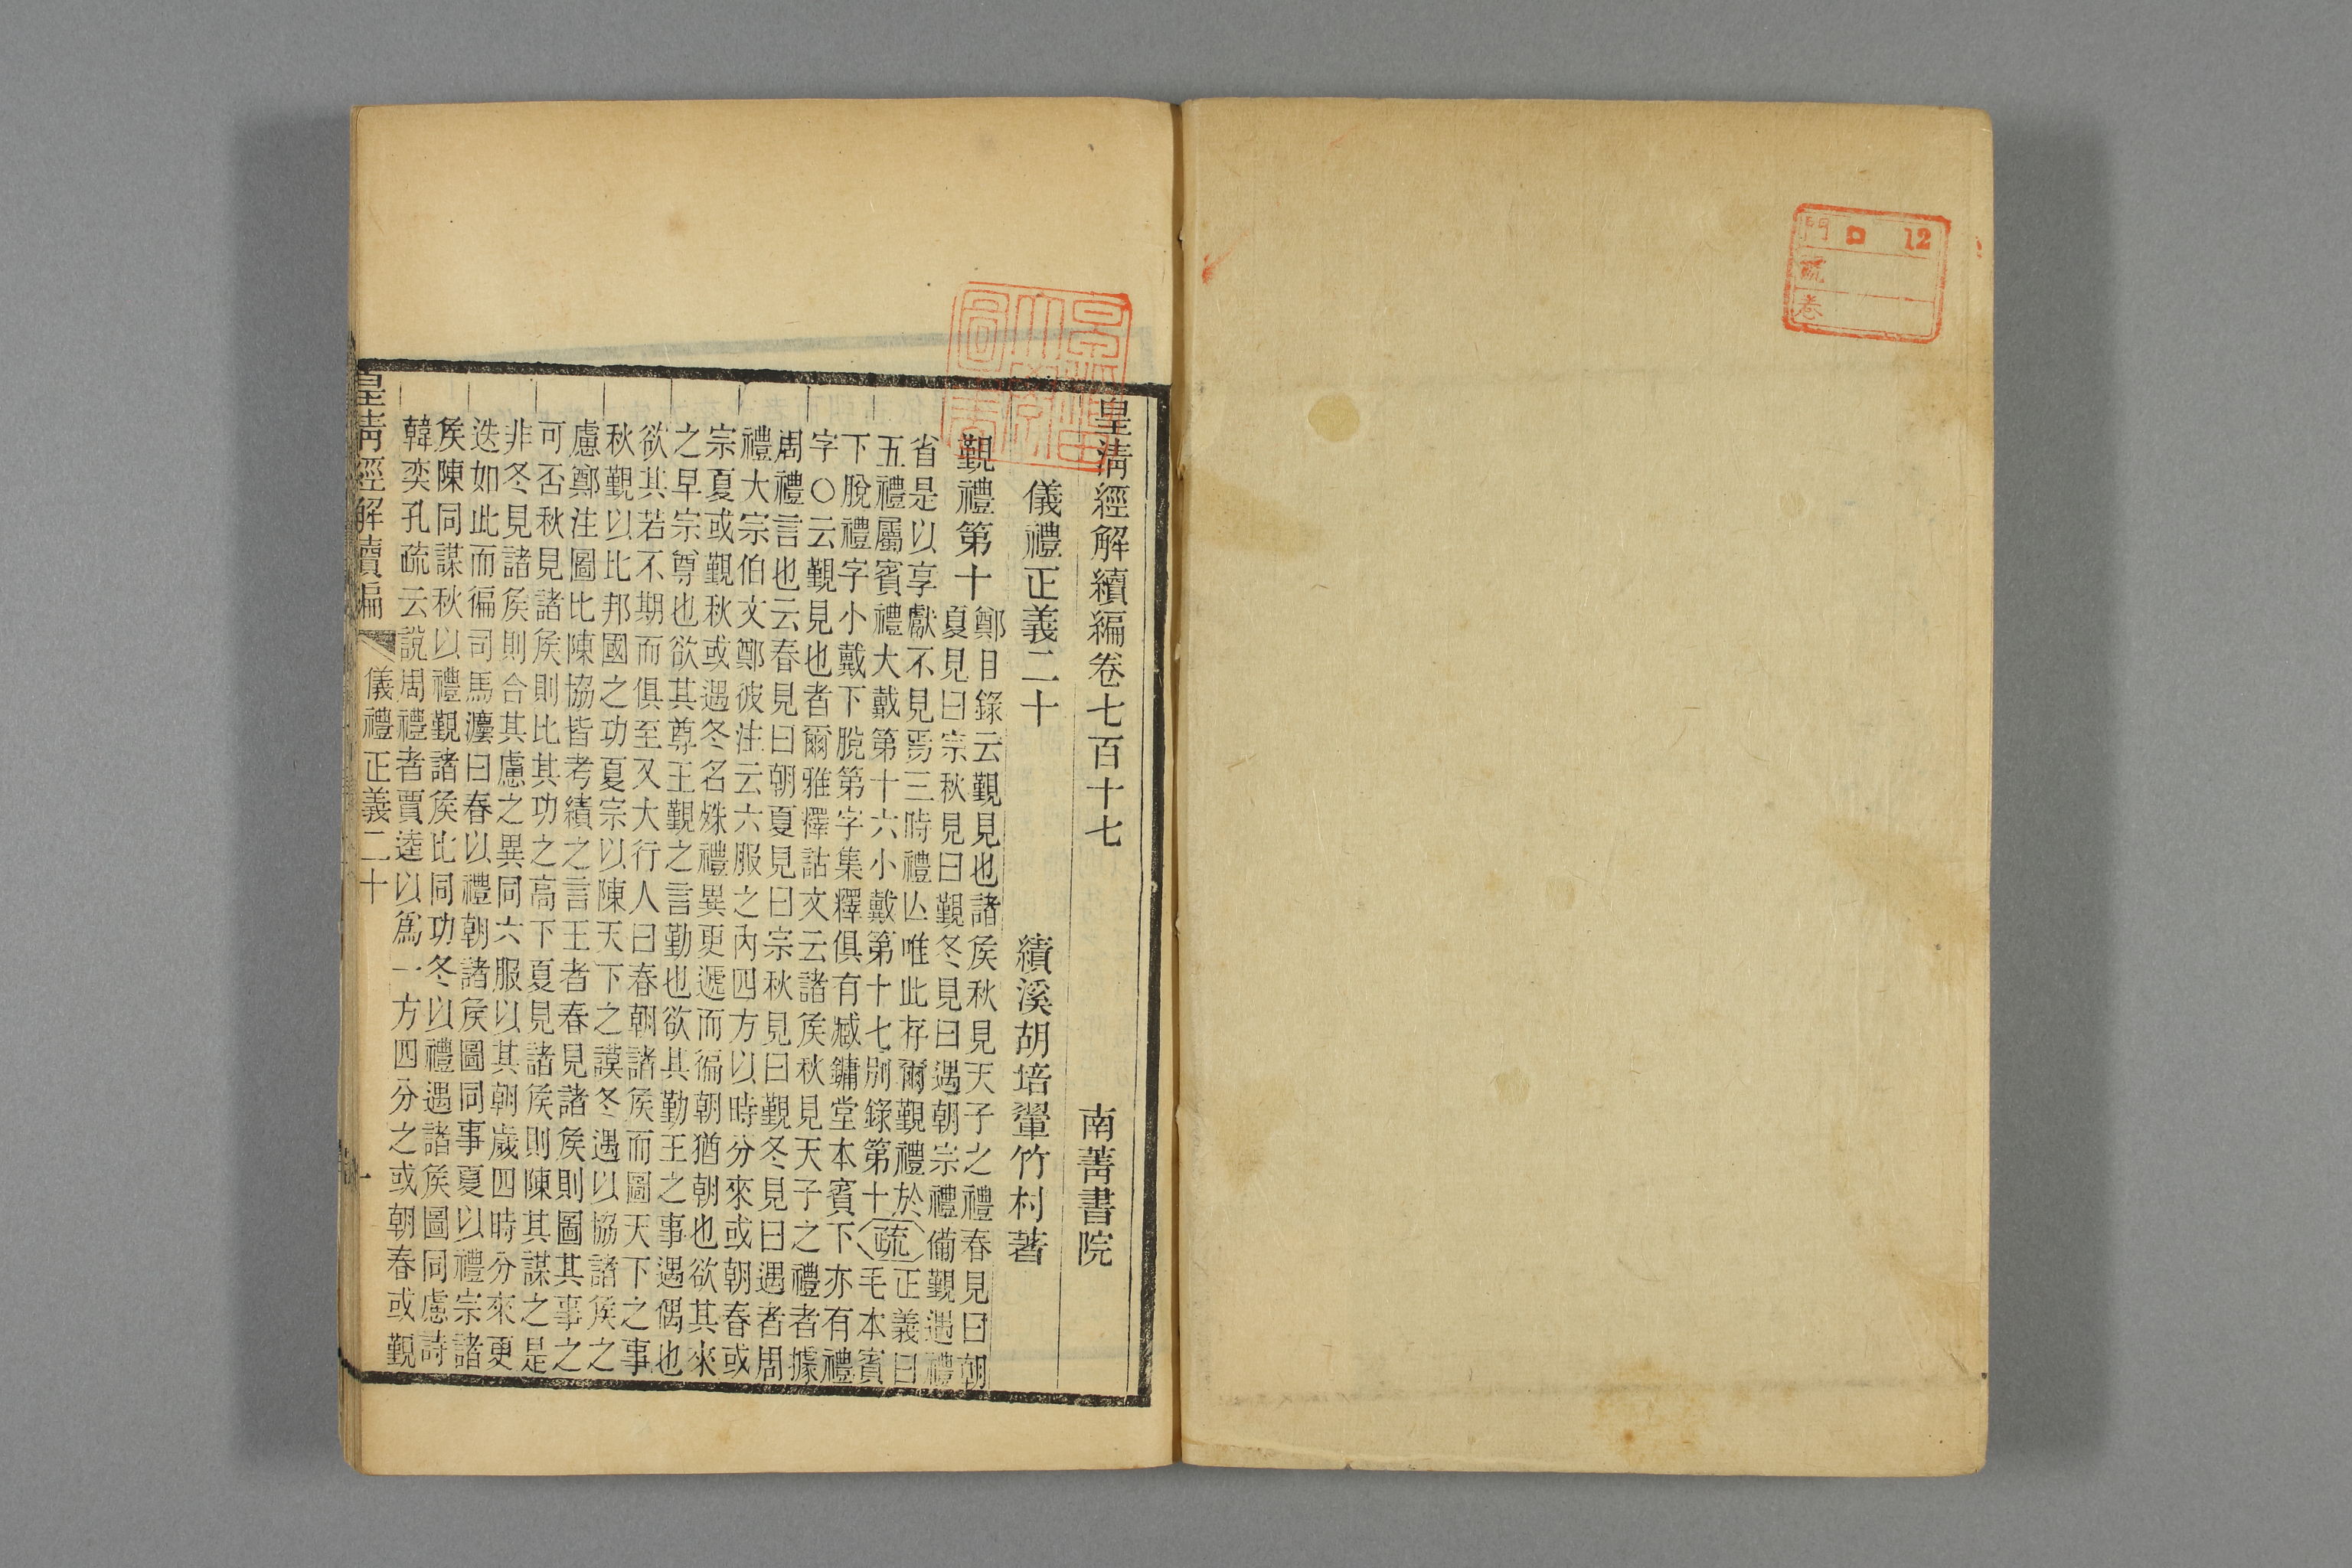 門 ロ 12
號
卷
皇淸經解續編卷七百十七 南菁書院
儀禮正義二十 績溪胡培翬竹村著
覲禮第十
鄭目錄云覲見也諸矦秋見天子之禮春見曰朝
夏見曰宗秋見曰覲冬見曰遇朝宗禮備覲遇禮
省是以享獻不見焉三時禮亾唯此存爾覲禮於
五禮屬賓禮大戴第十六小戴第十七別錄第十
疏
正義曰
毛本賓
下脫禮字小戴下脫第字集釋俱有臧鏞堂本賓下亦有禮
字○云覲見也者爾雅釋詁文云諸矦秋見天子之禮者據
周禮言也云春見曰朝夏見曰宗秋見曰覲冬見曰遇者周
禮大宗伯文鄭彼注云六服之內四方以時分來或朝春或
宗夏或覲秋或遇冬名殊禮異更遞而徧朝猶朝也欲其來
之早宗尊也欲其尊王覲之言勤也欲其勤王之事遇偶也
欲其若不期而俱至又大行人曰春朝諸矦而圖天下之事
秋覲以比邦國之功夏宗以陳天下之謨冬遇以協諸矦之
慮鄭注圖比陳協皆考績之言王者春見諸矦則圖其事之
可否秋見諸矦則比其功之高下夏見諸矦則陳其謀之是
非冬見諸矦則合其慮之異同六服以其朝歲四時分來更
迭如此而徧司馬灋曰春以禮朝諸矦圖同事夏以禮宗諸
矦陳同謀秋以禮覲諸矦比同功冬以禮遇諸矦圖同慮詩
韓奕孔疏云說周禮者賈逵以爲一方四分之或朝春或覲
皇淸經解續編 儀禮正義二十 一